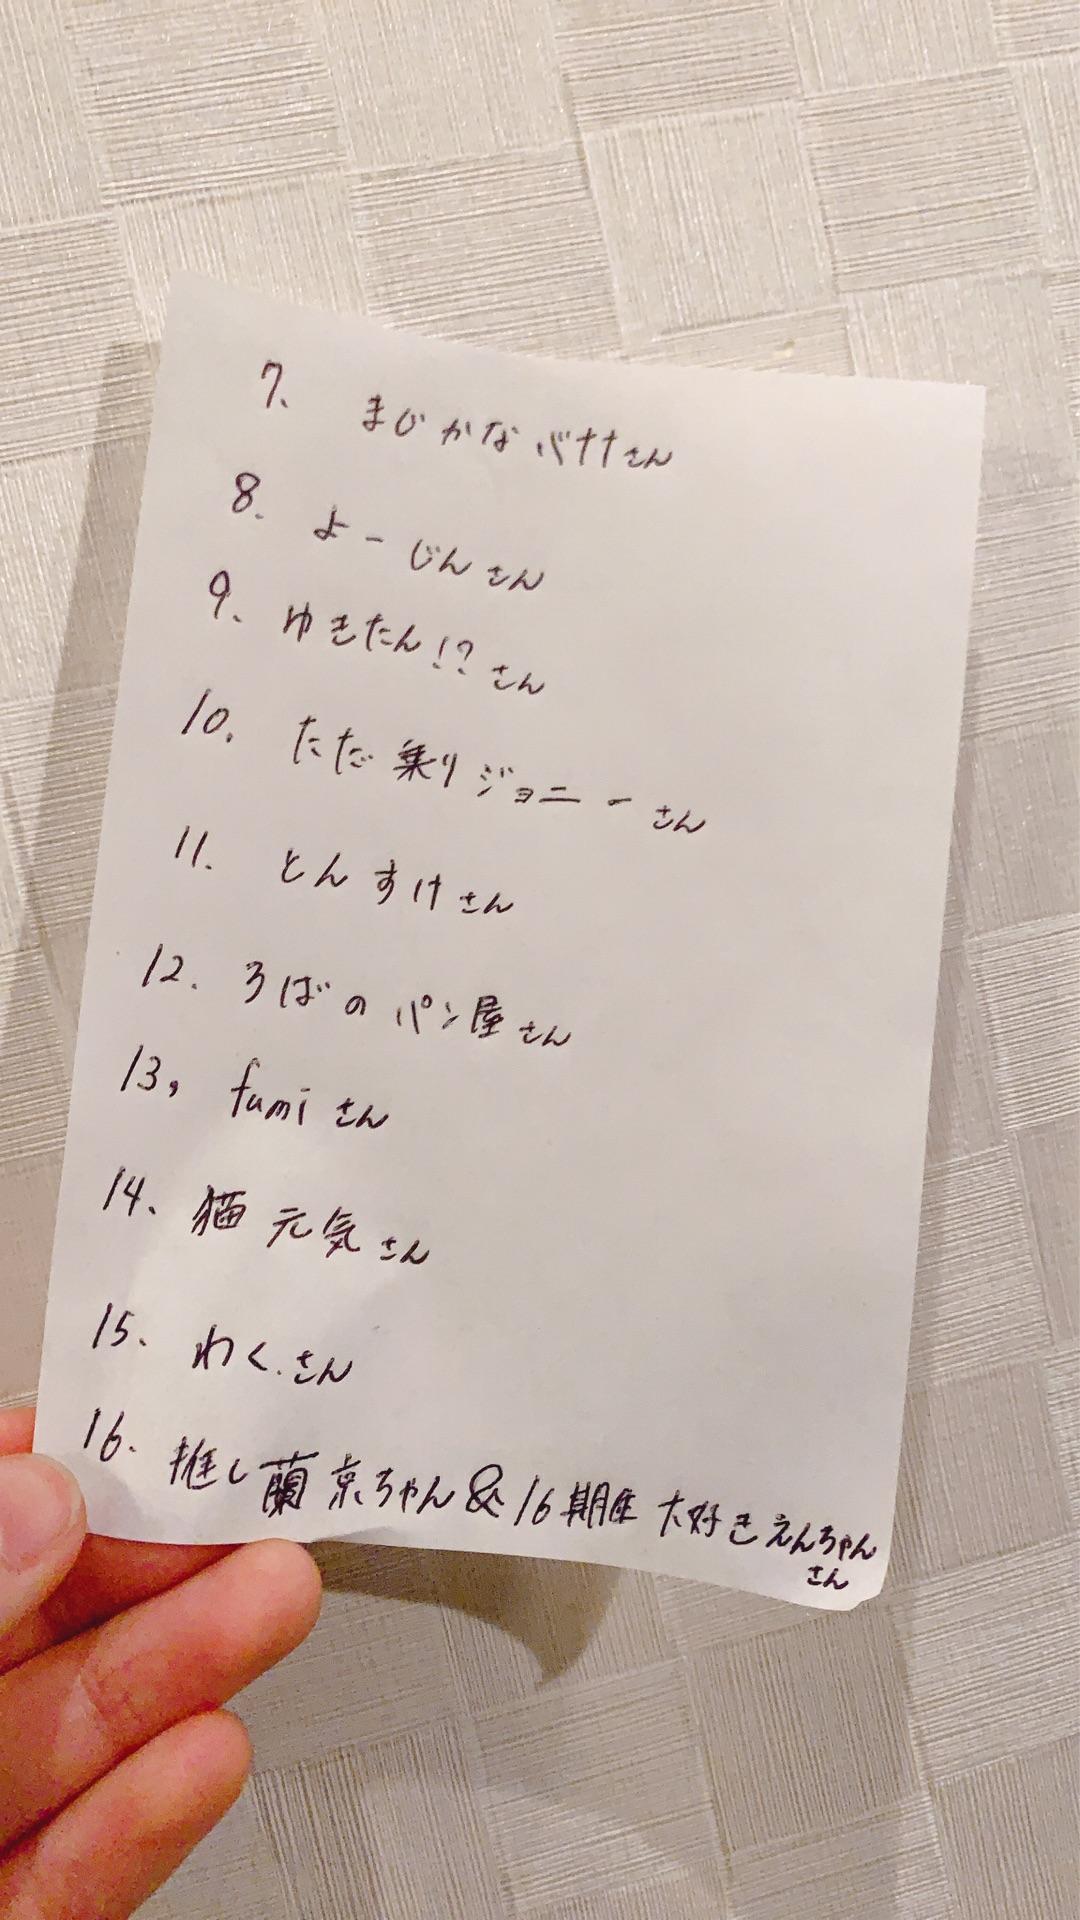 7. まじかなバナナさん
8. よーじんさん
9. ゆきたん!?さん
10. ただ乗りジョニーさん
11. とんすけさん
12. ろばのパン屋さん
13, fumiさん
14. 猫元気さん
15. わく.さん
16. 推し蘭京ちゃん&16期生大好きえんちゃん
さん